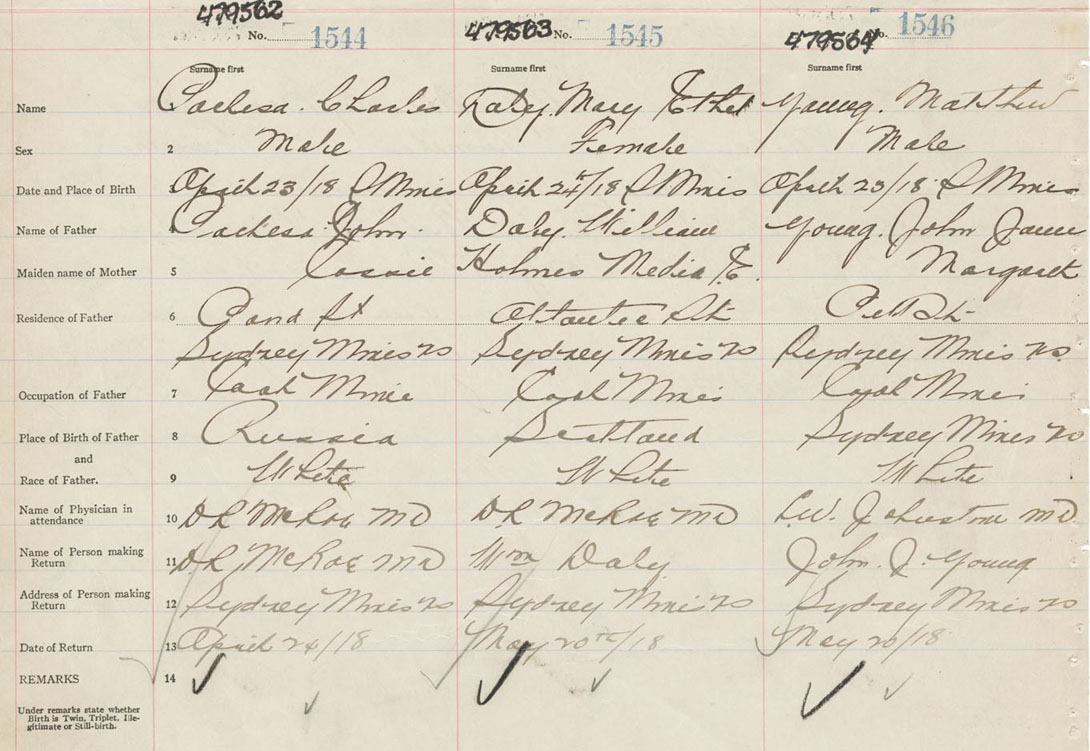 479562 479563 479564
No. 1544 No. 1545 No. 1546
Surname first Surname first Surname first
Name 1 Charles Daley. Mary Ethel Young. Matthew
Sex 2 Male Female Male
Date and Place of Birth 3 April 23/18 S Mines April 24th/18 S Mines April 23/18 S Mines
Name of Father 4 John. Daly. William Young. John James
Maiden name of Mother 5 Cassie Holmes Media E. Margaret
Residence of Father 6 Pond St Atlantic St Pitt St
Sydney Mines NS Sydney Mines NS Sydney Mines NS
Occupation of Father 7 Coal Mine Coal Mines Coal Mines
Place of Birth of Father 8 Russia Scotland Sydney Mines NS
and
Race of Father. 9 White White White
Name of Physician in
attendance 10 D R McRae MD D R McRae MD L.W. Johnstone MD
Name of Person making
Return 11 D R McRae MD Wm Daly John. J. Young
Address of Person making
Return 12 Sydney Mines NS Sydney Mines NS Sydney Mines NS
Date of Return 13 April 24/18 May 20th/18 May 20/18
REMARKS 14
Under remarks state whether
Birth is Twin, Triplet, Ille-
gitimate or Still-birth.